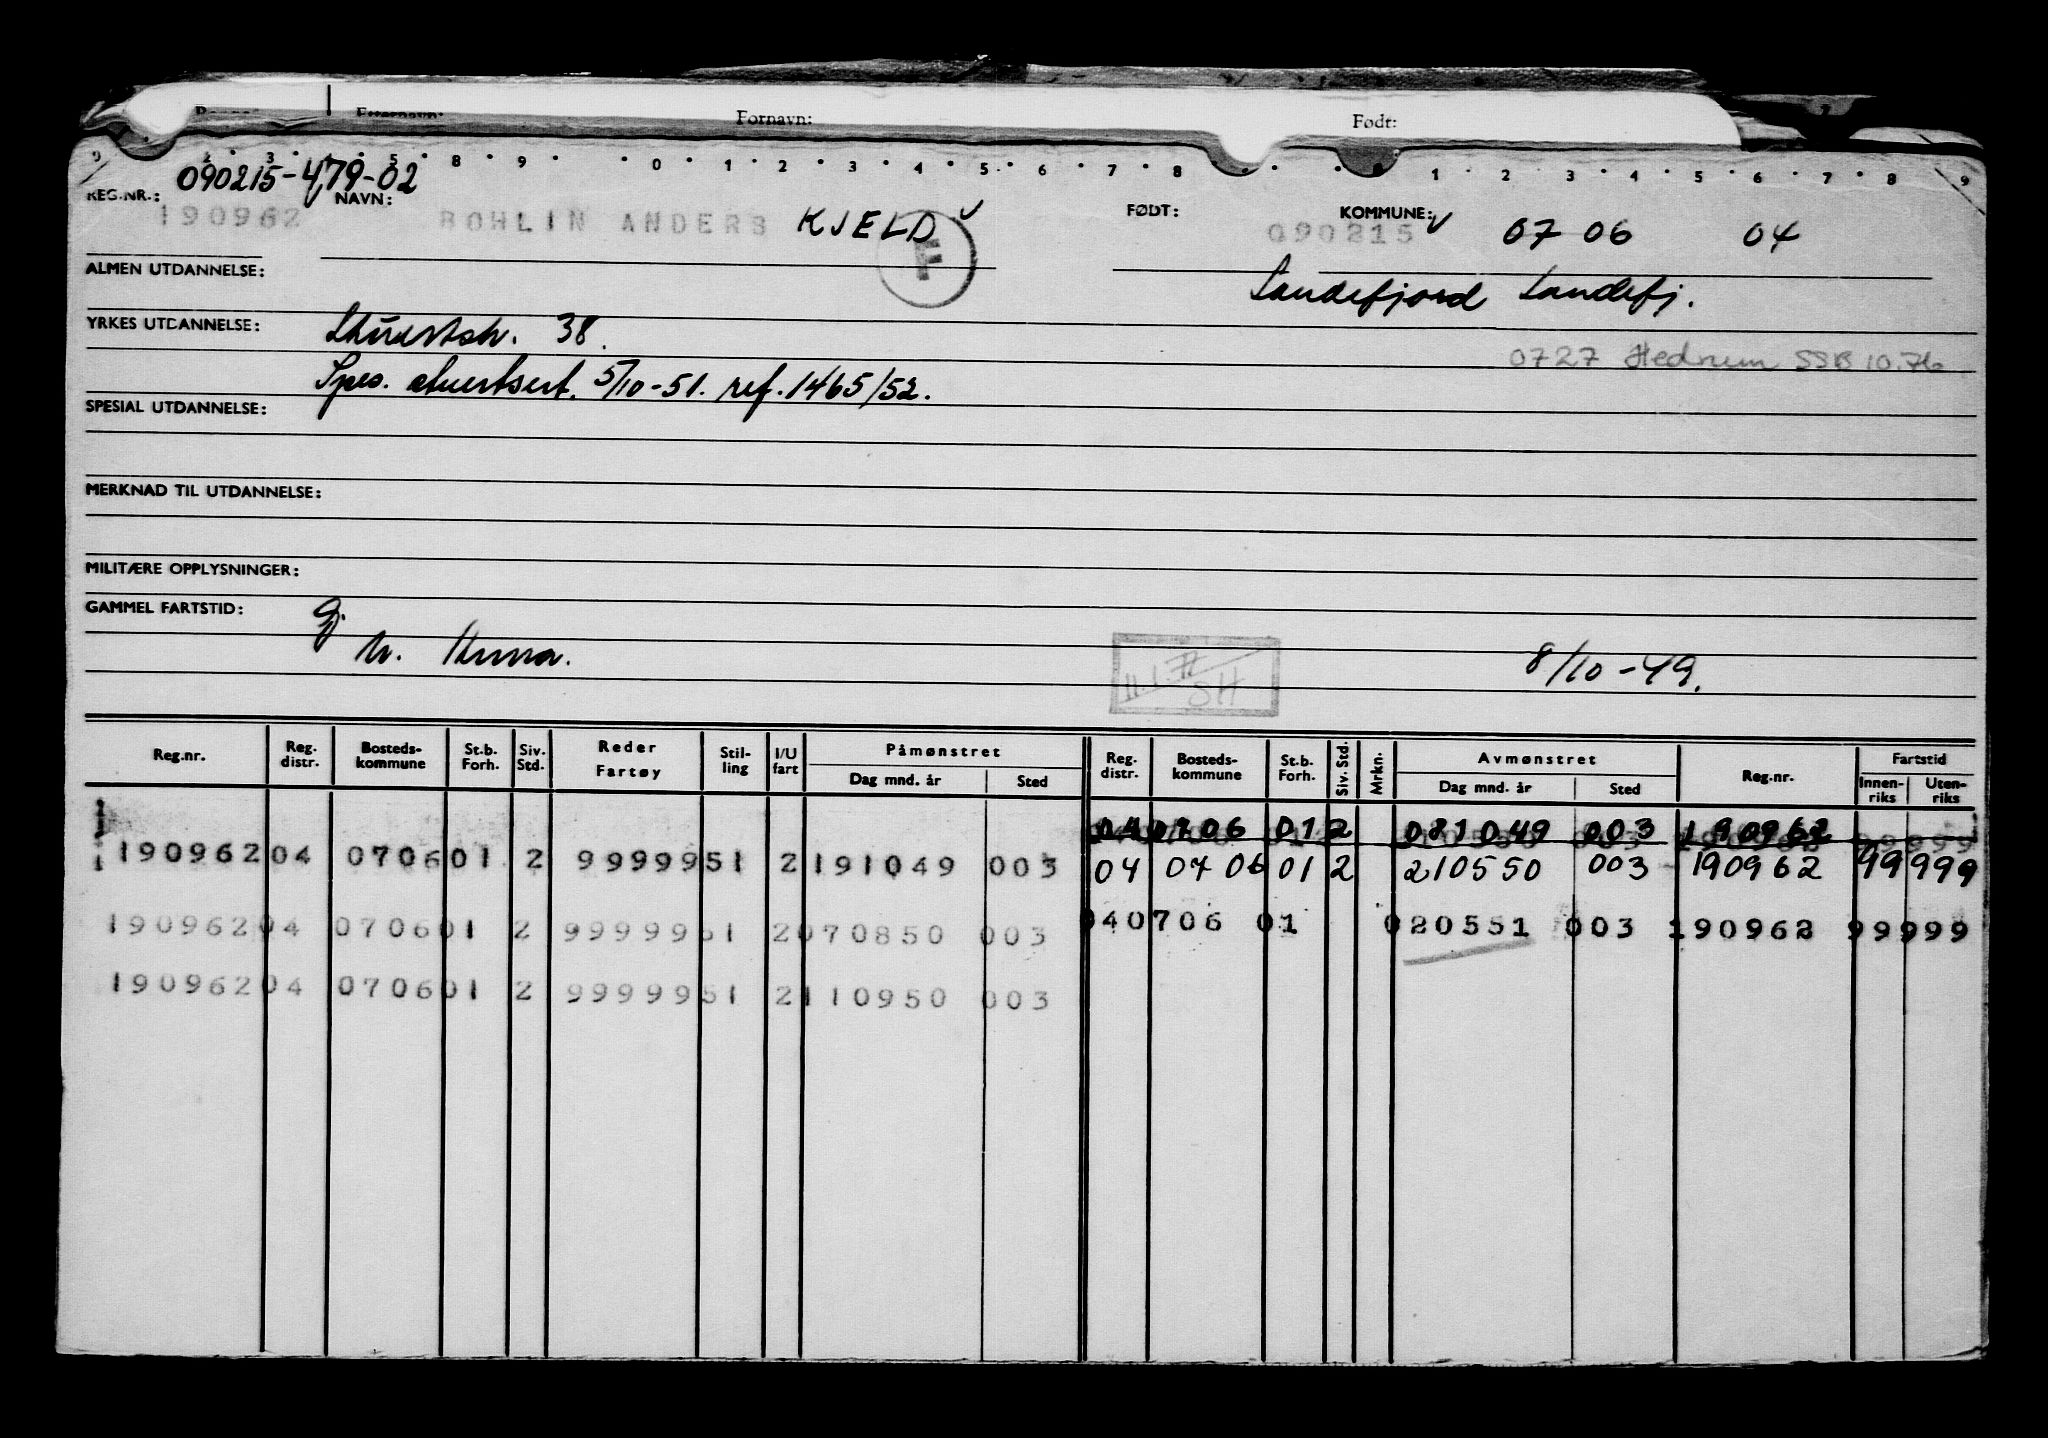 Fornavn: Født:
2 3 5 8 9 0 1 2 3 4 5 6 7 8 1 2 3 4 5 6 7 8 9
090215-479-02
REG.NR.: NAVN: FØDT: KOMMUNE:
190962 BOHLIN ANDERS KJELD 090215 07 06 04
F
ALMEN UTDANNELSE: Sandefjord Sandefj.
YRKES UTDANNELSE: Stuertsk. 38.
0727 Hedrum SSB 10.76
Spes. stuertsert. 5/10-51. ref. 1465/52.
SPESIAL UTDANNELSE:
MERKNAD TIL UTDANNELSE:
MILITÆRE OPPLYSNINGER:
GAMMEL FARTSTID:
8/10-49.
SH
Reg.nr. Reg. distr. Bosteds-kommune St.b. Forh. Siv. Std. Reder Fartøy Stil-ling I/U fart Påmønstret Dag mnd. år Sted Reg. distr. Bosteds-kommune St.b. Forh. Siv. Std. Mrkn. Avmønstret Dag mnd. år Sted Reg.nr. Fartstid Innen-riks Uten-riks
04 0706 01 2 081049 003 190962
190962 04 0706 01 2 99999 51 2 191049 003 04 0706 01 2 210550 003 190962 99 999
190962 04 0706 01 2 99999 51 2 070850 003 04 0706 01 020551 003 190962 99 999
190962 04 0706 01 2 99999 51 2 110950 003